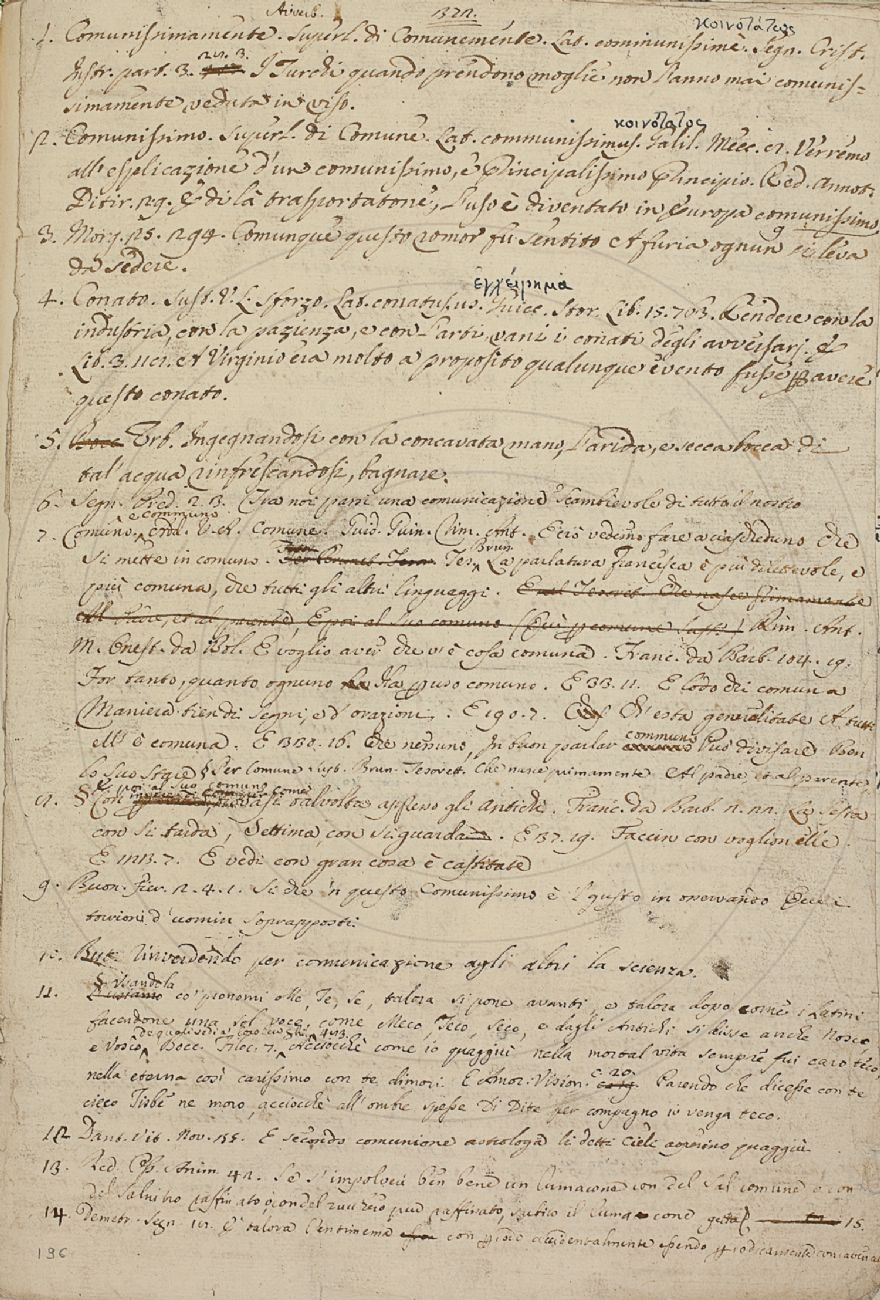 Avverb. 1322. κοινοτάτως
1. Comunissimamente. Superl. di Comunemente. Lat. communissimè. Segn. Crist.
Instr. part. 3. 22. 3. I Turchi quando prendono moglie non l'anno mai comunis-
simamente veduta in viso.
κοινότατος
2. Comunissimo. Superl. di Comune. Lat. communissimus. Galil. Mecc. Verremo
all'esplicazione d'un comunissimo, e Principalissimo Principio. Red. Annot.
Ditir. 29. E di là trasportatone, l'uso è diventato in Europa comunissimo
3. Morg. 25. 294. Comunque questo romor fu sentito A furia ognun si leva
da sedere.
ἐγχείρημα
4. Conato. Sust. V. L. Sforzo. Lat. conatus, us. Guicc. Stor. Lib. 15. 763. Rendere con la
industria, con la pazienza, e con l'arti, vani i conati degli avversarj. E
Lib. 3. A Virginio era molto a proposito qualunque evento fusse per avere
questo conato.
5. Ingegnandosi con la concavata mano, l'arida, e secca bocca di
tal' acqua rinfrescandosi, bagnare.
6. Segn. Pred. 2. 3. una comunicazione scambievole di tutto il nostro
e Communo
7. Comuno, V. A. Comune. Guid. Guin. Rim. Ant. E ciò vedemo fare a ciascheduno Che
si mette in comuno. Tes. Brun. La parlatura francesca è più dilettevole, e
più comuna, che tutti gli altri linguaggi. E nel Tesoret. Che nasce primamente
Al Padre, et al parente, E poi al suo comuno Rim. Ant.
M. Onest. da Bol. E voglio aver che v'è cosa comuna. Franc. da Barb. 104. 19.
For tanto, quanto ognuno Ha per uso comuno. E 33. 11. E lodo chi comuna
Maniera tien di segni, e d'orazioni. E 190. 7. D'esta generalitate A tutti
Ell' è comuna. E 330. 16. Che nessuno, In buon parlar communo Può divisare Ben
lo suo stare § Per Comune. Sust. Brun. Tesorett. Che nasce primamente Al padre, et al parente
E poi al suo comuno
§ Con talvolta appresso gli Antichi. Franc. da Barb. La sesta
con si tarda, Settima, con si guarda. E 37. 19. Faccin con voglion elle
E 1213. 7. E vedi con gran cosa è castitate
9. Buon. Fier. 2. 4. 1. Si che 'n questo Comunissimo è l'gusto in
torioni d'uomin soprapposti
10. But. per comunicazione agli altri la scienza.
§ Usandola
11. co' pronomi Me, Te, Se, talora si pone avanti, e talora dopo come i Latini
facendone una sol voce, come Meco, Teco, Seco, e dagli Antichi si disse anche Nosco,
e Vosco, Bocc. Filoc. 7. Acciocchè come io quaggiù nella mortal vita sempre fui caro teco,
nella eterna così carissimo con te dimori. E Amor. Vision. c. 20. Parendo che dicesse con te
cieco Tisbe ne moro, acciocchè all'ombre spesse Di Dite per compagno io venga teco.
12. Dant. Vit. Nov. E secondo comunione astrologa li detti Cieli quaggiù.
13. Red. Oss. Anim. 42. Se s'impolveri ben bene un lumacone con del Sal comune o con
del Salnitro raffinato, o con del zucchero pur raffinato, subito il lumacone getta 15.
14. Demetr. Segn. E talora l'entimema con periodo accidentalmente
196